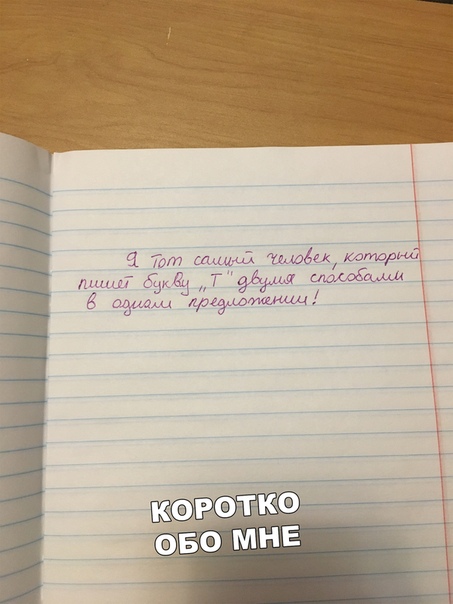 Я тот самый человек, который
пишет букву „Т" двумя способами
в одном предложении!
КОРОТКО
ОБО МНЕ